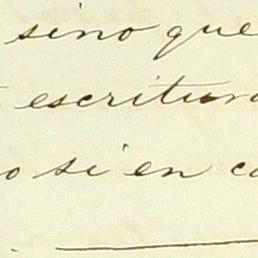 sino que
escritura
o si en ca